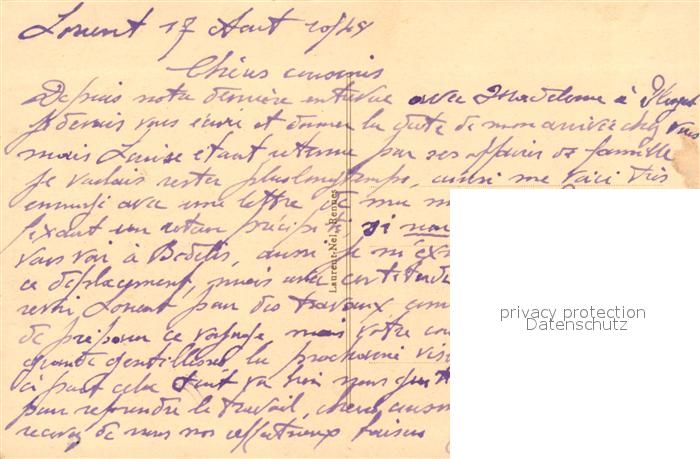 Lorient 17 Aout 1948
Chers cousins
Depuis notre dernière entrevue avec Madeleine à
Je devais vous écrire et donner la date de mon arrivée chez vous
mais Louise étant retenue par ses affaires de famille
je voulais rester plus longtemps, aussi me voici très
ennuyé avec une lettre de ma m
fixant un retour précipité, si nous
vous voir à Bedée, aussi je m'ex
ce déplacement, mais avec certitude
revoir Lorient par des travaux
de préparer ce voyage mais votre cou
grande gentillesse la prochaine visi
à part cela tout va bien nous
pour reprendre le travail, chers cousins
recevez de nous nos affectueux baisers
Laurent-Nel, Rennes
privacy protection
Datenschutz